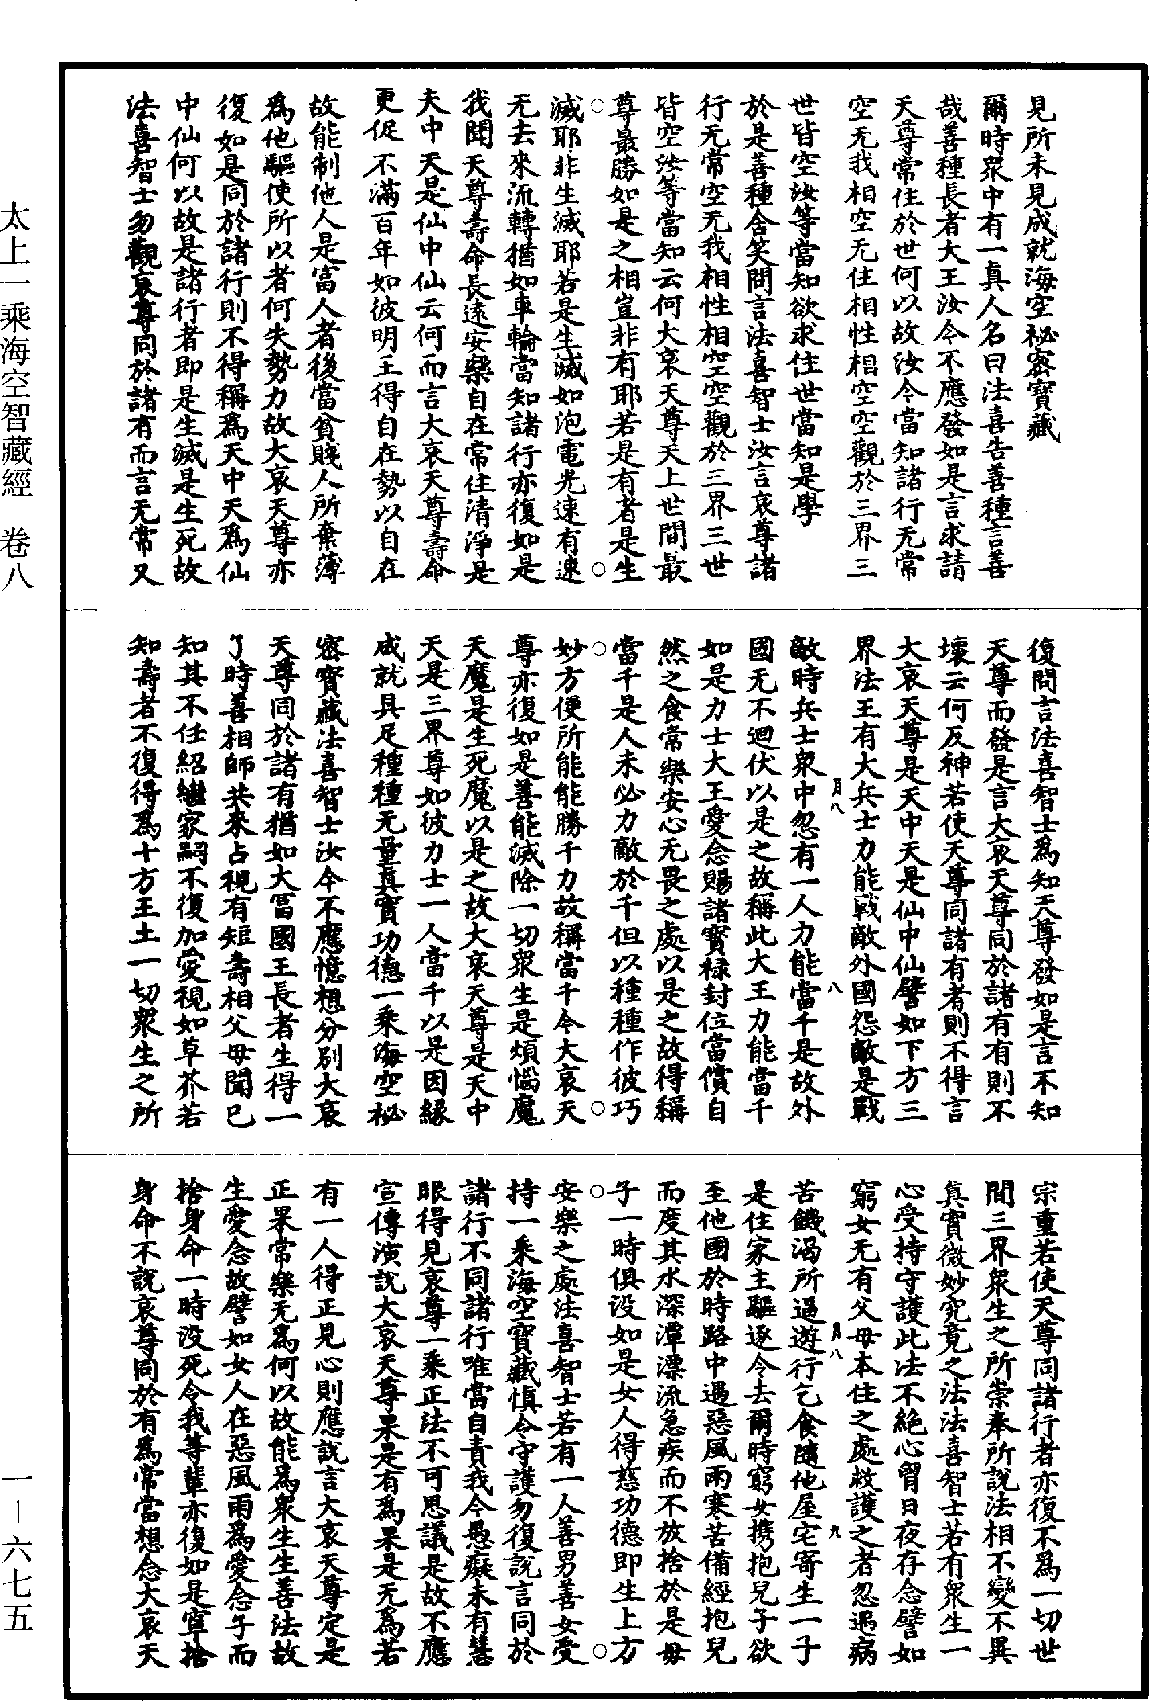 見所未見成就海空祕密寶藏
爾時眾中有一真人名曰法喜告善種言善
哉善種長者大王汝今不應發如是言求請
天尊常住於世何以故汝今當知諸行无常
空无我相空无住相性相空空觀於三界三
世皆空汝等當知欲求住世當知是學
於是善種含笑問言法喜智士汝言哀尊諸
行无常空无我相性相空空觀於三界三世
皆空汝等當知云何大哀天尊天上世間最
尊最勝如是之相豈非有耶若是有者是生
滅耶非生滅耶若是生滅如泡電光速有速
无去來流轉猶如車輪當知諸行亦復如是
我聞天尊壽命長遠安樂自在常住清淨是
天中天是仙中仙云何而言大哀天尊壽命
更促不滿百年如彼明王得自在勢以自在
故能制他人是富人者後當貧賤人所棄薄
為他驅使所以者何失勢力故大哀天尊亦
復如是同於諸行則不得稱為天中天為仙
中仙何以故是諸行者即是生滅是生死故
法喜智士勿觀哀尊同於諸有而言无常又
復問言法喜智士為知天尊發如是言不知
天尊而發是言大哀天尊同於諸有有則不
壞云何反神若使天尊同諸有者則不得言
大哀天尊是天中天是仙中仙譬如下方三
界法王有大兵士力能戰敵外國怨敵是戰
敵時兵士眾中忽有一人力能當千是故外
國无不迴伏以是之故稱此大王力能當千
如是力士大王愛念賜諸寶祿封位當償自
然之食常樂安心无畏之處以是之故得稱
當千是人未必力敵於千但以種種作彼巧
妙方便所能能勝千力故稱當千今大哀天
尊亦復如是善能滅除一切眾生是煩惱魔
天魔是生死魔以是之故大哀天尊是天中
天是三界尊如彼力士一人當千以是因緣
成就具足種種无量真實功德一乘海空祕
密寶藏法喜智士汝今不應憶想分別大哀
天尊同於諸有猶如大富國王長者生得一
了時善相師共來占視有短壽相父母聞已
知其不任紹繼家嗣不復加愛視如草芥若
知壽者不復得為十方王土一切眾生之所
宗重若使天尊同諸行者亦復不為一切世
間三界眾生之所崇奉所說法相不變不異
真實微妙究竟之法法喜智士若有眾生一
心受持守護此法不絕心胷日夜存念譬如
窮女无有父母本住之處救護之者忽遇病
苦饑渴所逼遊行乞食隨他屋宅寄生一子
是住家主驅逐令去爾時窮女携抱兒子欲
至他國於時路中遇惡風雨寒苦備經抱兒
而度其水深潭漂流急疾而不放捨於是母
子一時俱没如是女人得慈功德即生上方
安樂之處法喜智士若有一人善男善女受
持一乘海空寶藏慎令守護勿復說言同於
諸行不同諸行唯當自責我今愚癡未有慧
眼得見哀尊一乘正法不可思議是故不應
宣傳演說大哀天尊果是有為果是无為若
有一人得正見心則應說言大哀天尊定是
正果常樂无為何以故能為眾生生善法故
生愛念故譬如女人在惡風雨為愛念子而
捨身命一時没死令我等輩亦復如是寧捨
身命不說哀尊同於有為常當想念大哀天
月八
八
月八
九
太上一乘海空智藏經　卷八
一—六七五